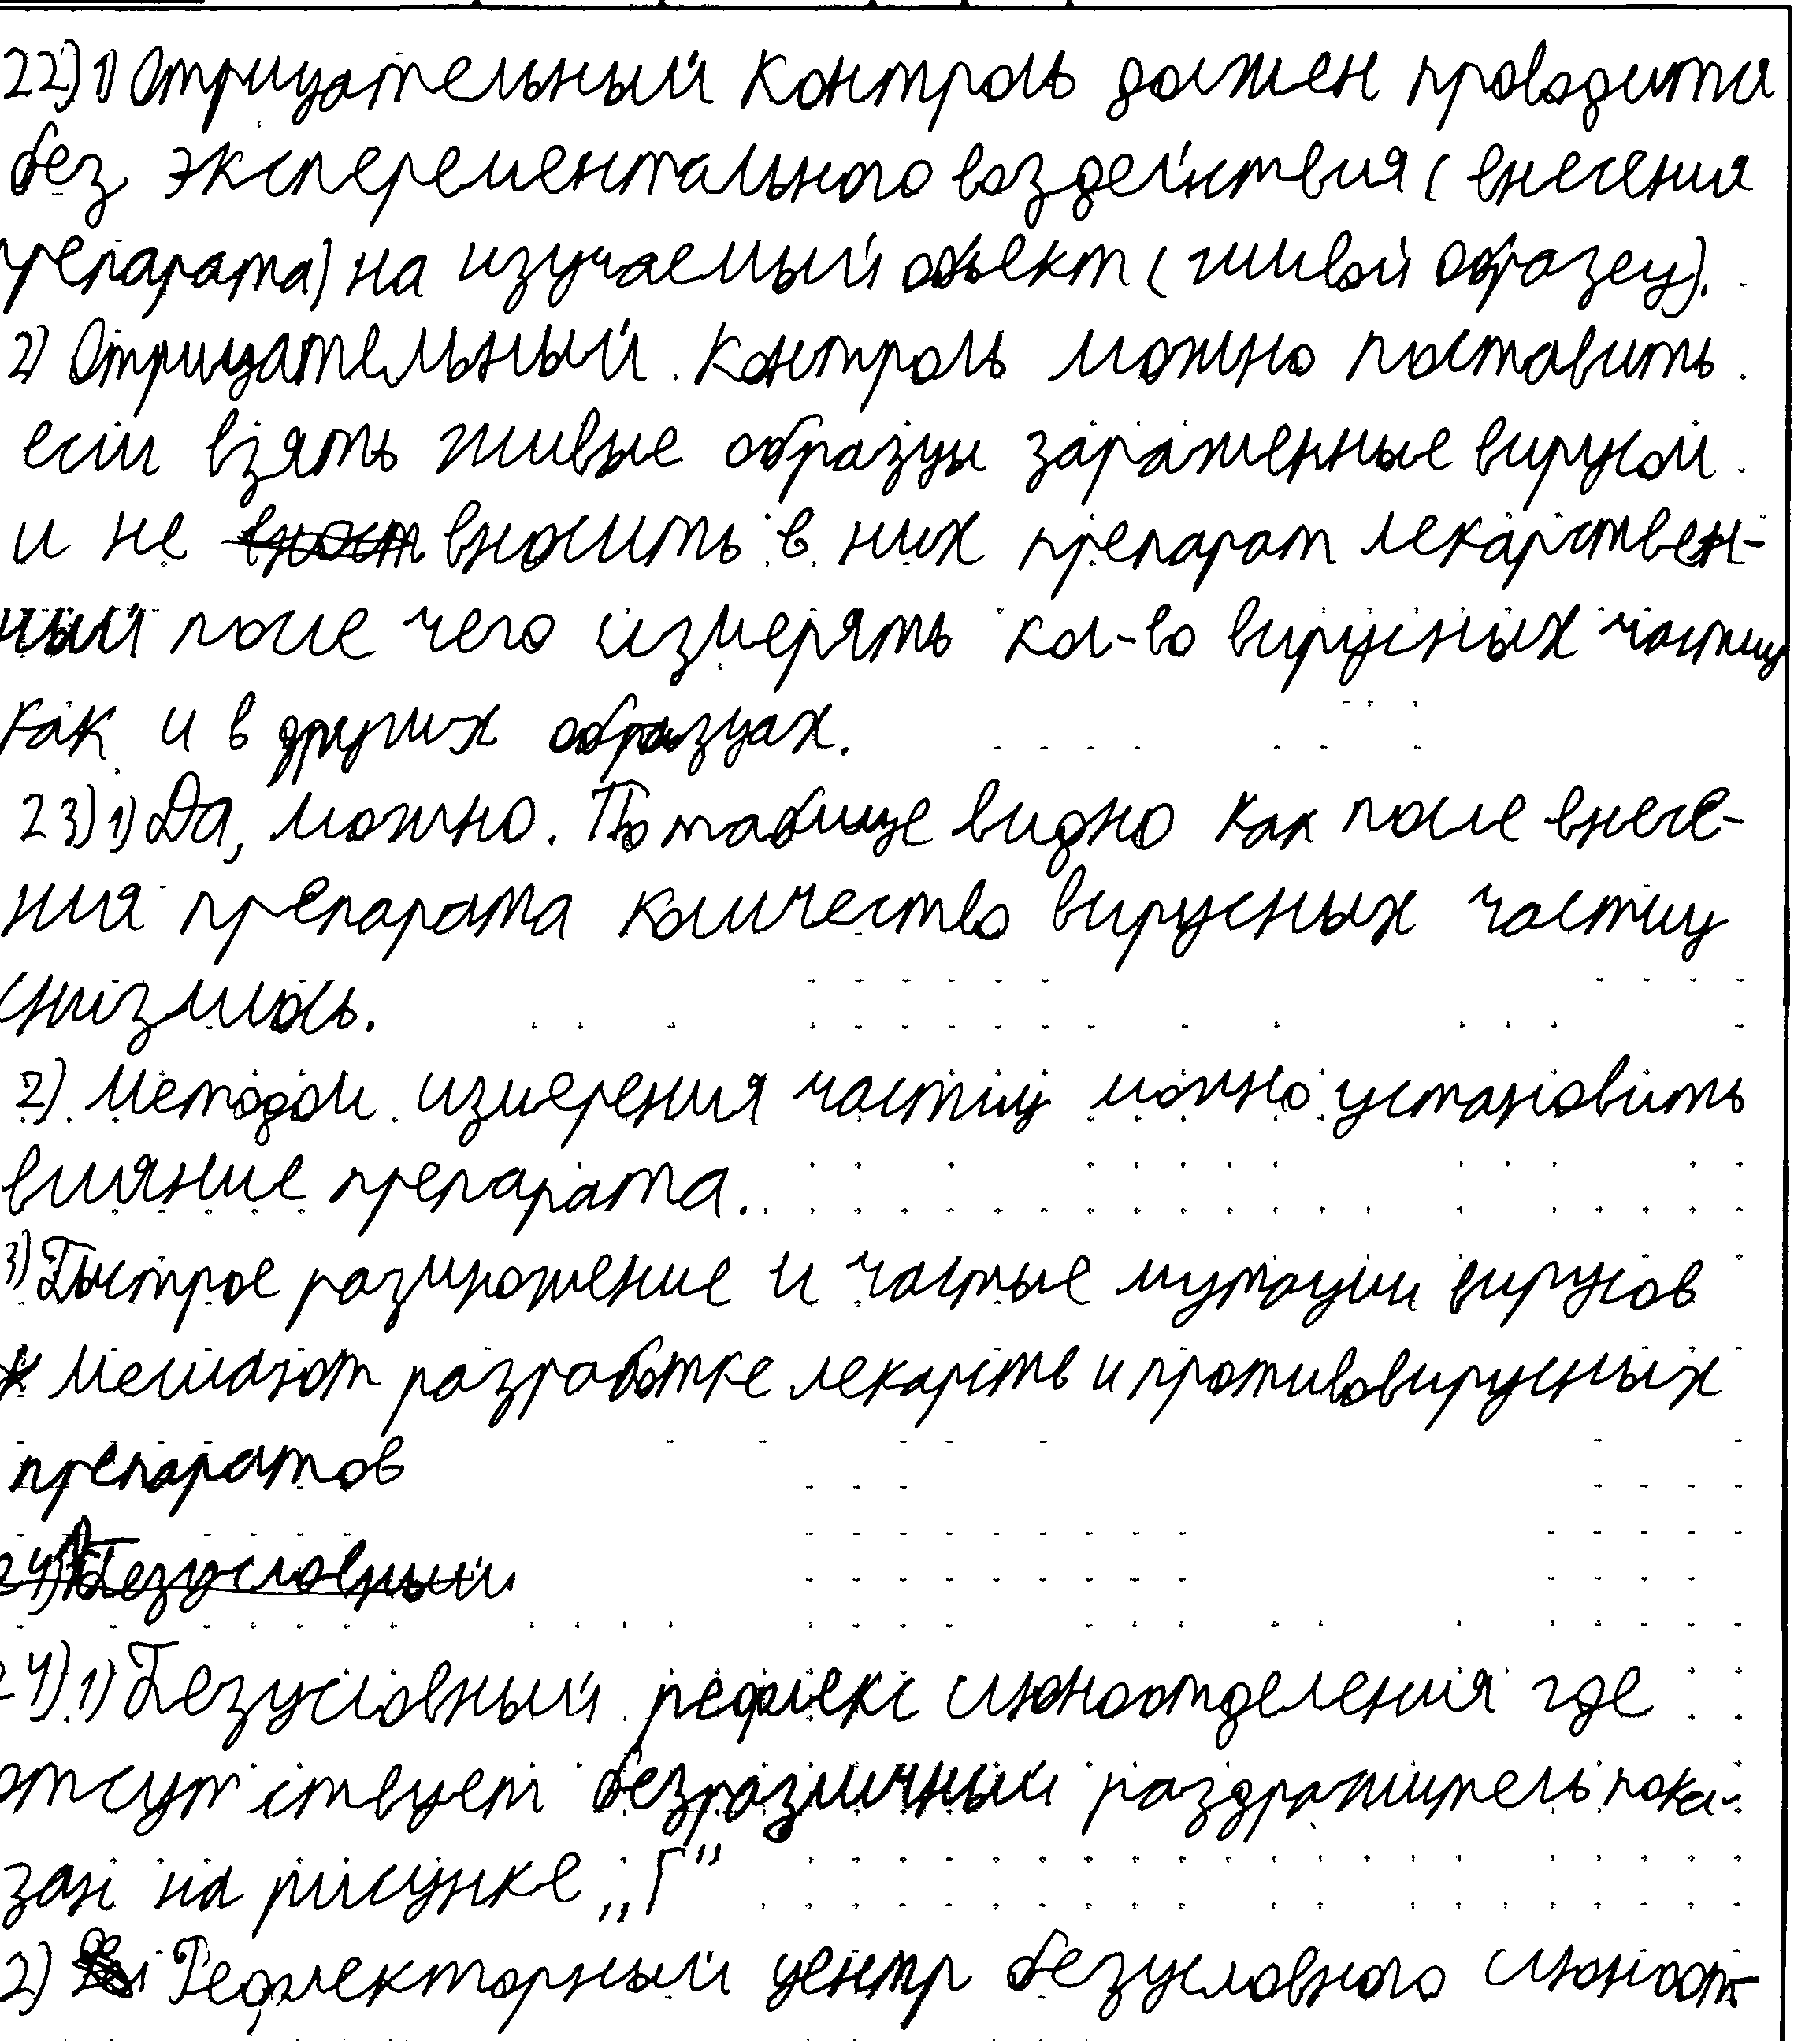 22) 1) Отрицательный контроль должен проводится
без эксперементального воздействия ( внесения
препарата) на изучаемый объект ( живой образец).
2) Отрицательный контроль можно поставить
если взять живые образцы зараженные вирусом
и не вносить в них препарат лекарствен-
ный после чего измерять кол-во вирусных частиц
как и в других образцах.
23) 1) Да, можно. По таблице видно как после внесе-
ния препарата количество вирусных частиц
снизилось.
2) Методом измерения частиц можно установить
влияние препарата.
3) Быстрое размножение и частые мутации вирусов
мешают разработке лекарств и противовирусных
препаратов
24) 1) Безусловный
24) 1) Безусловный рефлекс слюноотделения где
отсутствует безразличный раздражитель пока-
зан на рисунке „Г"
2) Рефлекторный центр безусловного слюноот-